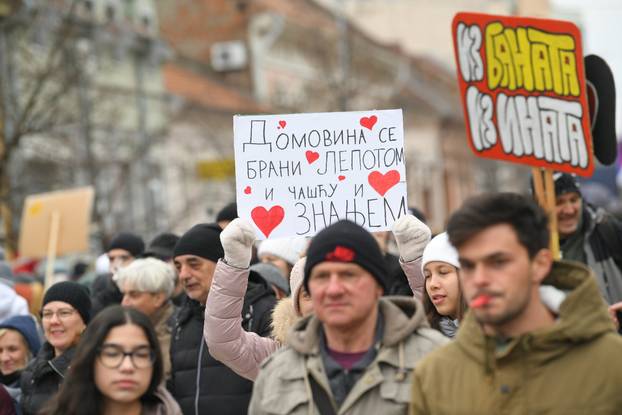 Домовина се
брани лепотом
и чашћу и
знањем
из Баната
из ината